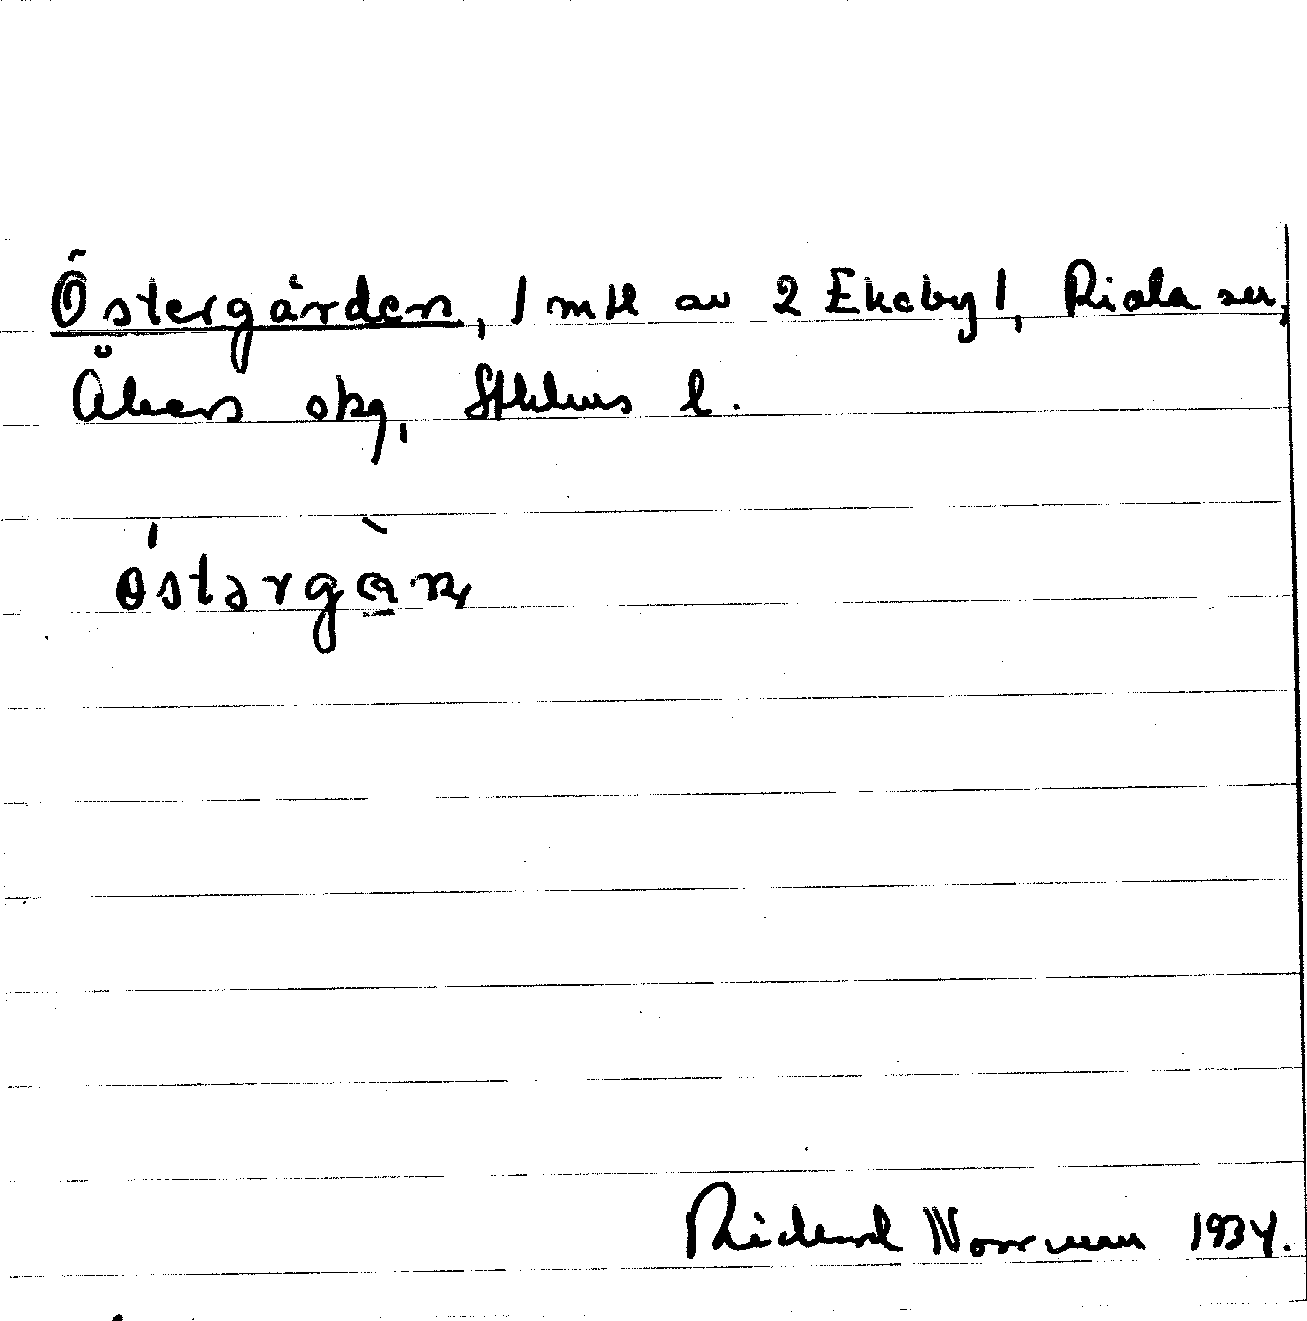 Östergården, 1 mtl av 2 Ekeby 1, Riala sn,
Åkers skg, Sthlms l.
östərgɑ̀ɳ
Richard Norrman 1934.